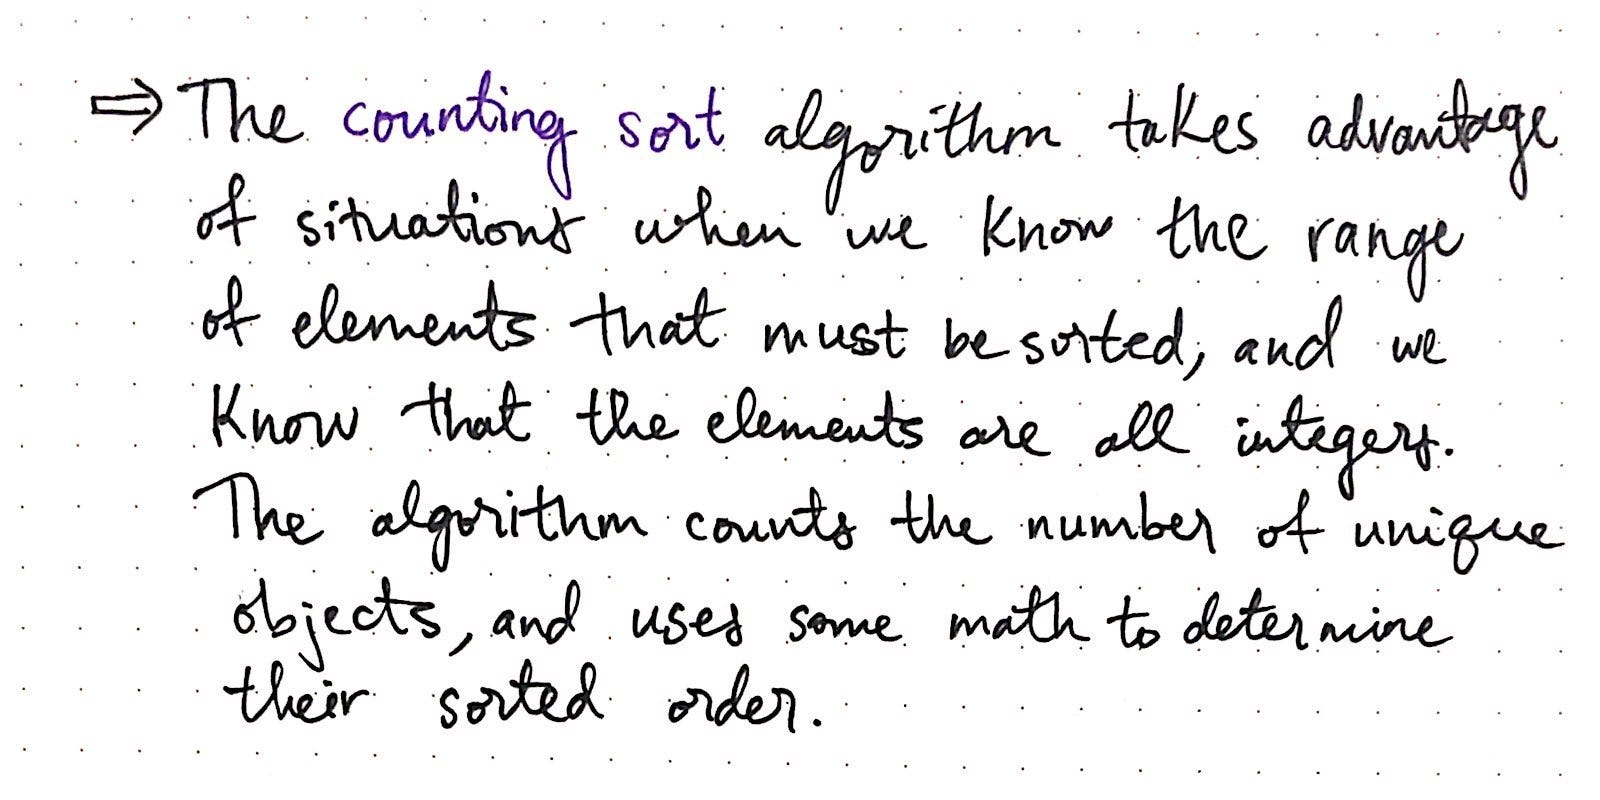 ⇒ The counting sort algorithm takes advantage
of situations when we know the range
of elements that must be sorted, and we
know that the elements are all integers.
The algorithm counts the number of unique
objects, and uses some math to determine
their sorted order.